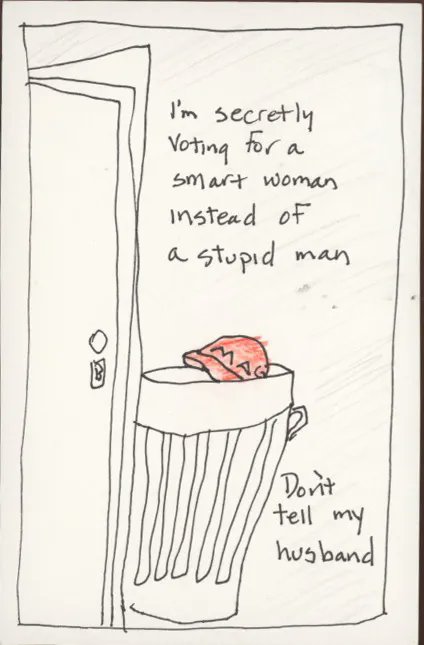 I'm secretly
Voting for a
smart woman
instead of
a stupid man
MAG
Don't
tell my
husband